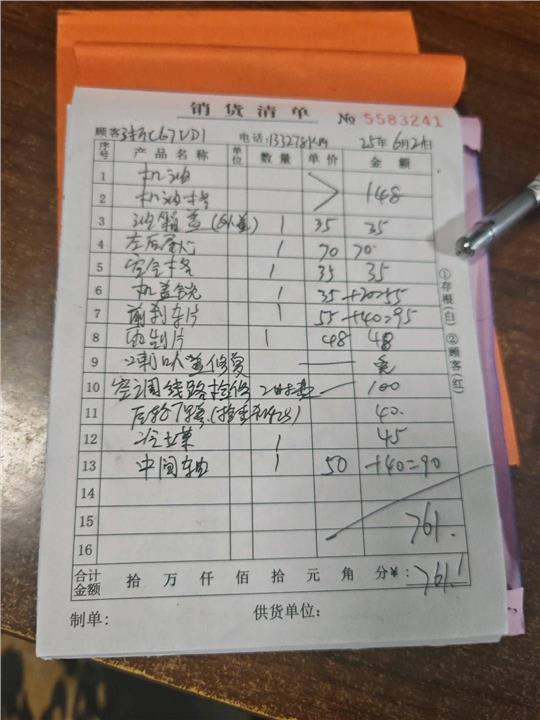 销货清单 No 5583241
顾客 C67VD1 电话:133278 25年6月2日
序号 产品名称 单位 数量 单价 金额
1 机油
2 机油格 148
3 油箱盖(外盖) 1 35 35
4 左后尾 1 70 70
5 安全 1 35 35
6 机盖锁 1 35+20=55
7 前刹车片 1 55+40=95
8 刹片 1 48 48
9 喇叭 修复 免
10 空调线路检修 100
11 后轮 40
12 冷 1 45
13 中间轴 1 50 +40=90
14
15 761.
16
合计金额 拾 万 仟 佰 拾 元 角 分¥: 761.
制单: 供货单位:
①存根(白) ②顾客(红)